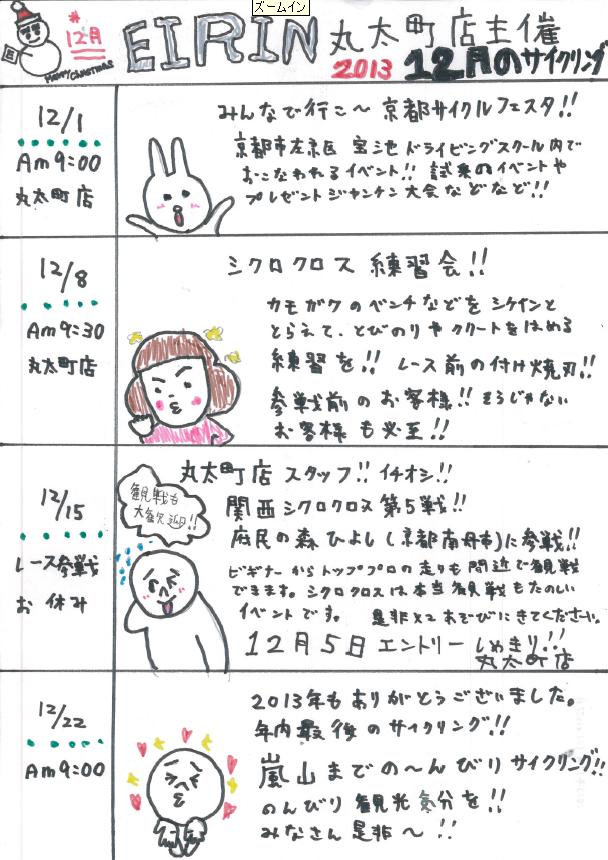 ズームイン
12月
HAPPY CHRISTMAS
EIRIN 丸太町店主催
2013 12月のサイクリング
12/1
Am9:00
丸太町店
みんなで行こ〜 京都サイクルフェスタ!!
京都市左京区 宝池ドライビングスクール内で
おこなわれるイベント!! 試乗のイベントや
プレゼントジャンケン大会などなど!!
12/8
Am9:30
丸太町店
シクロクロス 練習会!!
カモガワのベンチなどを シケインと
とらえて、とびのりやクリートをはめる
練習を!! レース前の付け焼刃!!
参戦前のお客様!! そうじゃない
お客様も必至!!
12/15
レース参戦
お休み
観戦も
大歓迎!!
丸太町店 スタッフ!! イチオシ!!
関西シクロクロス 第5戦!!
府民の森ひよし(京都南丹市)に参戦!!
ビギナーからトッププロの走りも間近で観戦
できます。シクロクロスは本当観戦もたのしい
イベントです。 是非××あそびにきてください。
12月5日 エントリー しめきり!!
丸太町店
12/22
Am9:00
2013年もありがとうございました。
年内最後のサイクリング!!
嵐山までの〜んびりサイクリング!!
のんびり観光気分を!!
みなさん是非〜!!